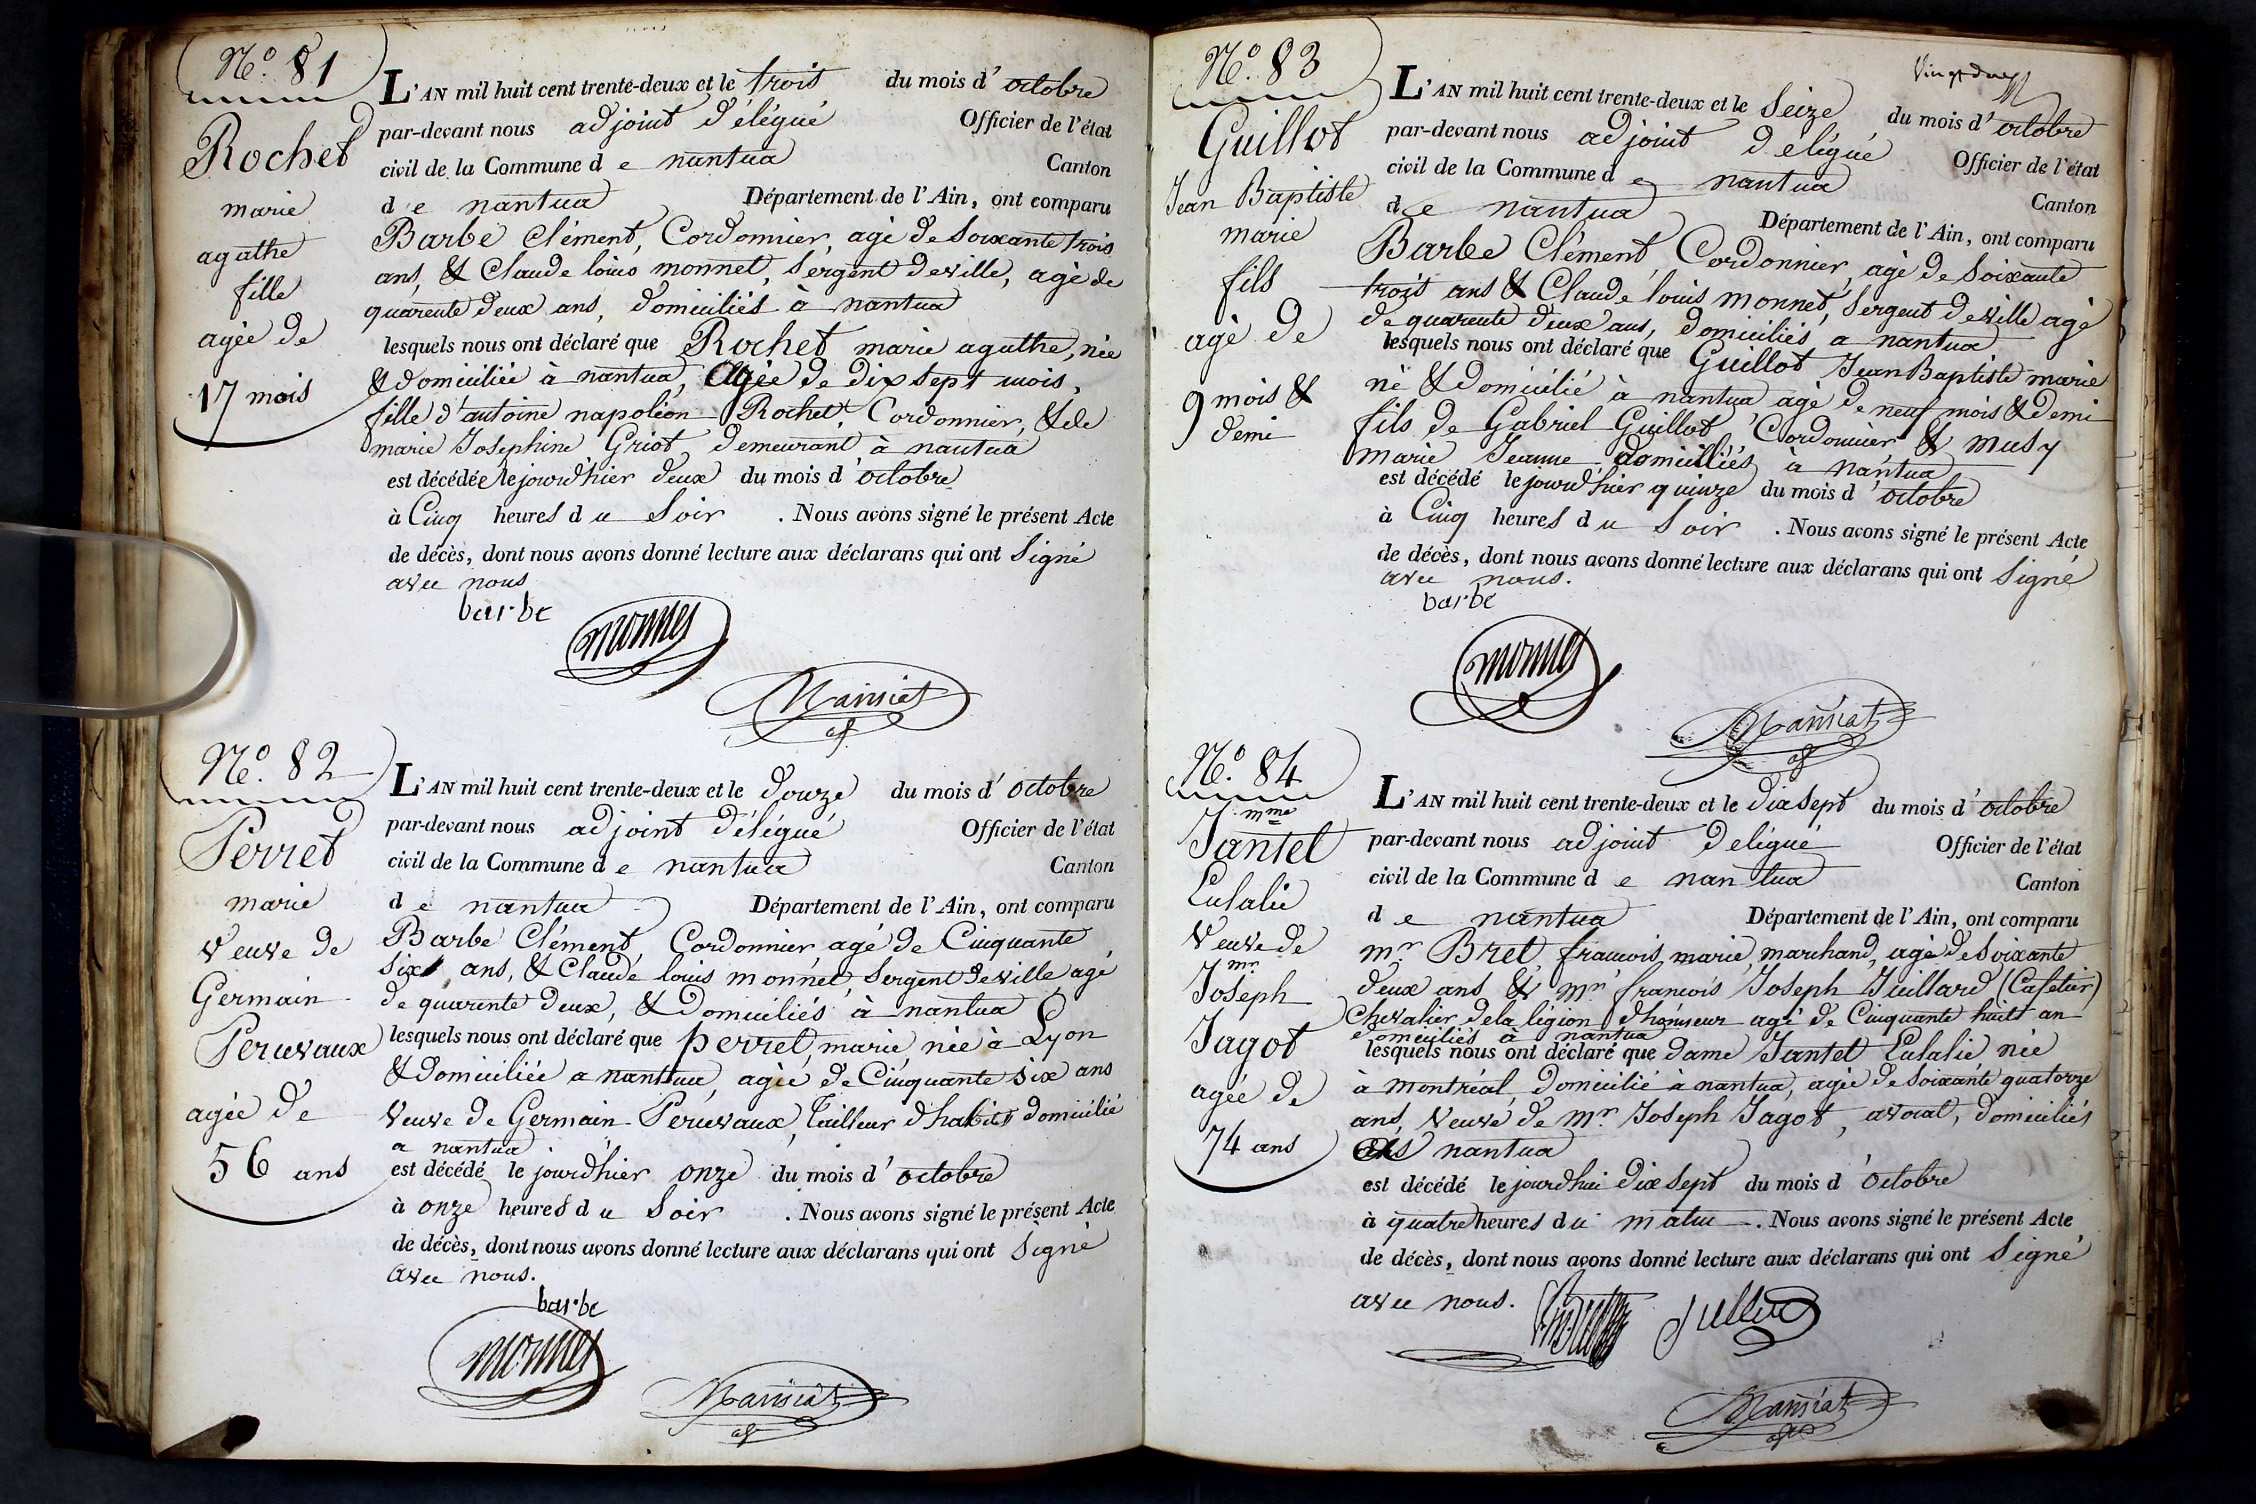 N.º 81
Rochet
marie
agathe
fille
agée de
17 mois
L'AN mil huit cent trente-deux et le trois du mois d'octobre
par-devant nous adjoint délégué Officier de l'état
civil de la Commune de nantua Canton
de nantua Département de l'Ain, ont comparu
Barbe Clément, Cordonnier, agé de Soixante trois
ans, & Claude louis monnet, Sergent de ville, agé de
quarente deux ans, domiciliés à nantua
lesquels nous ont déclaré que Rochet marie agathe, née
& domiciliée à nantua, agée de dix sept mois,
fille d'antoine napoléon Rochet, Cordonnier, & de
marie Josephine Griot demeurant à nantua
est décédée le jourd'hier deux du mois d'octobre
à Cinq heures du Soir . Nous avons signé le présent Acte
de décès, dont nous avons donné lecture aux déclarans qui ont Signé
avec nous
barbe
monnet
Mansiat
N.º 82
Perret
marie
Veuve de
Germain
Peruvaux
agée de
56 ans
L'AN mil huit cent trente-deux et le douze du mois d'octobre
par-devant nous adjoint délégué Officier de l'état
civil de la Commune de nantua Canton
de nantua Département de l'Ain, ont comparu
Barbe Clément, Cordonnier agé de Cinquante
six ans, & Claude louis monnet, Sergent de ville agé
de quarente deux, & domiciliés à nantua
lesquels nous ont déclaré que perret, marie, née à Lyon
& domiciliée a nantua, agée de Cinquante six ans
Veuve de Germain Peruvaux, Tailleur d'habits domicilié
a nantua
est décédé le jourd'hier onze du mois d'octobre
à onze heures du Soir . Nous avons signé le présent Acte
de décès, dont nous avons donné lecture aux déclarans qui ont Signé
avec nous.
barbe
monnet
Mansiat
N.º 83
Guillot
Jean Baptiste
marie
fils
agé de
9 mois &
demi
L'AN mil huit cent trente-deux et le Seize du mois d'octobre
par-devant nous adjoint délégué Officier de l'état
civil de la Commune de nantua Canton
de nantua Département de l'Ain, ont comparu
Barbe Clément, Cordonnier, agé de Soixante
trois ans & Claude louis monnet, Sergent de ville agé
de quarente deux ans, domiciliés a nantua
lesquels nous ont déclaré que Guillot Jean Baptiste marie
né & domicilié à nantua agé de neuf mois & demi
fils de Gabriel Guillot, Cordonnier & musy
marie Jeanne domiciliés à nantua
est décédé le jourd'hier quinze du mois d'octobre
à Cinq heures du Soir . Nous avons signé le présent Acte
de décès, dont nous avons donné lecture aux déclarans qui ont Signé
avec nous.
barbe
monnet
Mansiat
N.º 84
mme
Jantet
Eulalie
Veuve de
mr
Joseph
Jagot
agée de
74 ans
L'AN mil huit cent trente-deux et le dix Sept du mois d'octobre
par-devant nous adjoint délégué Officier de l'état
civil de la Commune de nantua Canton
de nantua Département de l'Ain, ont comparu
mr Bret francois marie, marchand, agé de Soixante
deux ans & mr francois Joseph Juillard (Cafetier)
Chevalier de la légion d'honneur agé de Cinquante huit an
domiciliés à nantua
lesquels nous ont déclaré que dame Jantet Eulalie née
à montréal, domicilié à nantua, agée de Soixante quatorze
ans, Veuve de mr Joseph Jagot, avocat, domiciliés
nantua
est décédé le jourd'hui dix Sept du mois d'octobre
à quatre heures du matin . Nous avons signé le présent Acte
de décès, dont nous avons donné lecture aux déclarans qui ont Signé
avec nous.
Mansiat